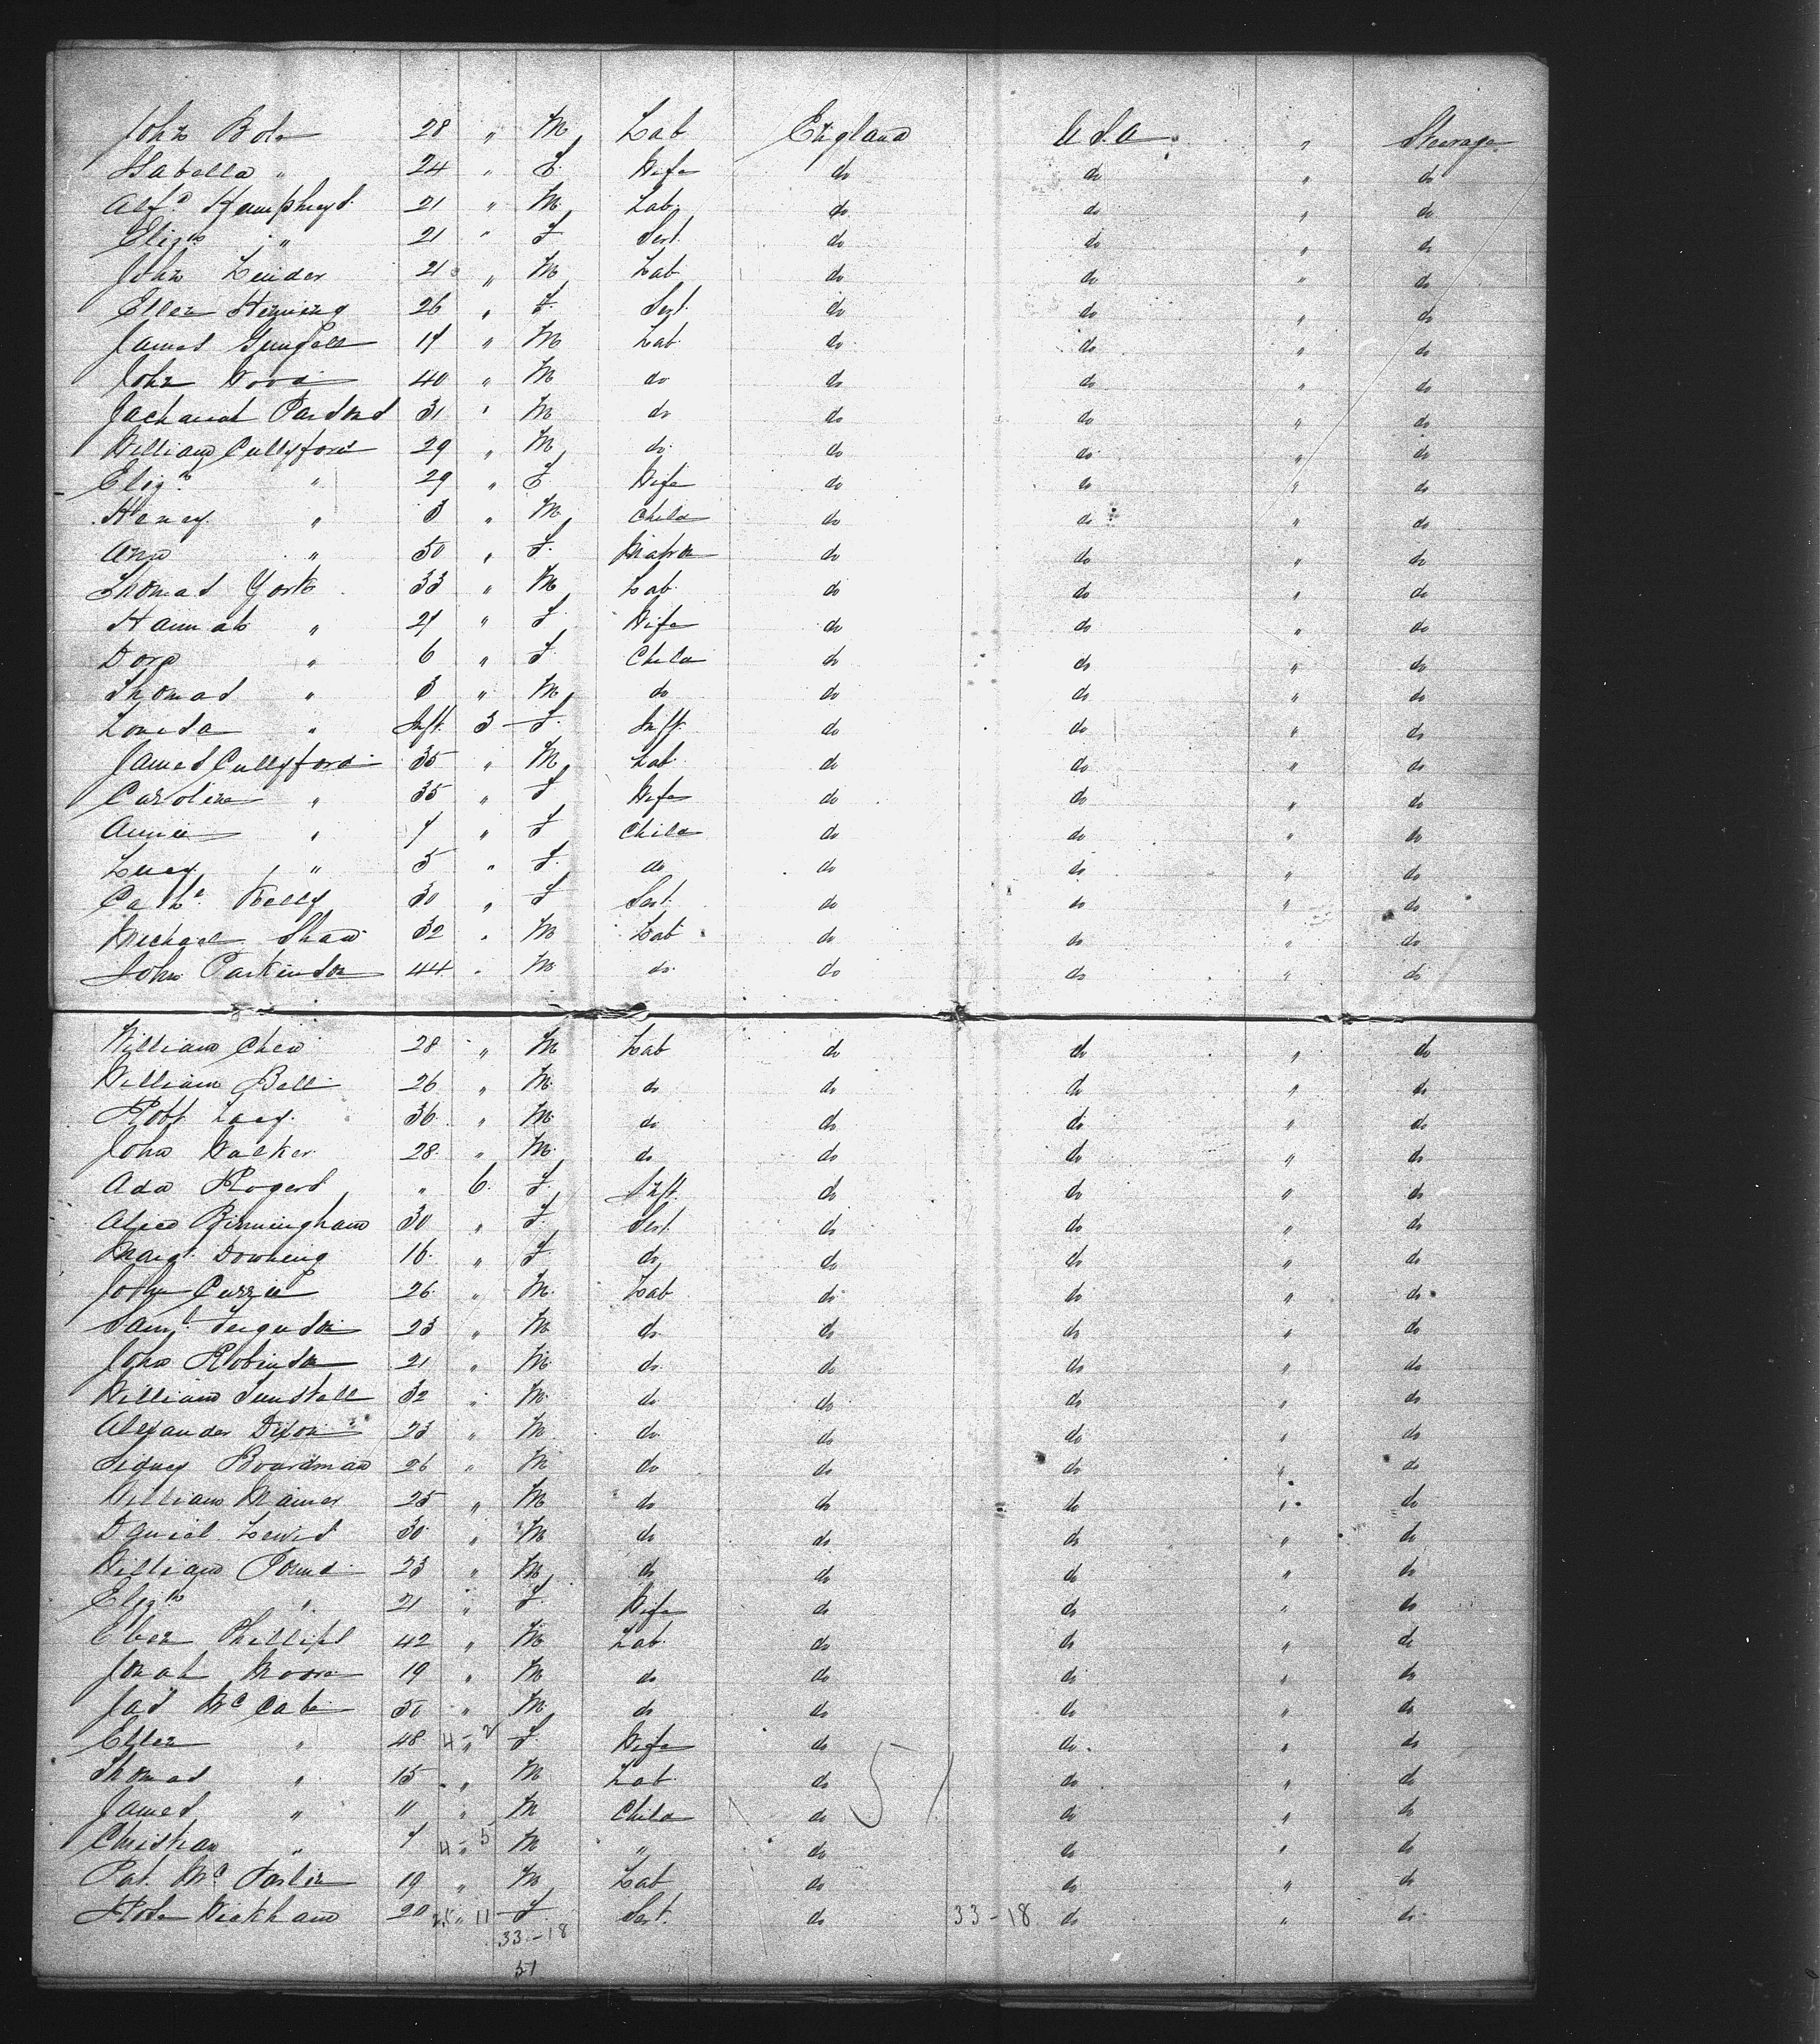 John Bole 28 " M Lab England U.S.A. " Steerage
Isabella " 24 " F Wife do do " do
Alfd Humphreys 21 " M Lab do do " do
Elizth " 21 " F Sert do do " do
John 21 " M Lab do do " do
Ellen 26 " F Sert do do " do
James " M Lab do do " do
John Wood 40 " M do do do " do
Parsons 31 " M do do do " do
William Cullyford 29 " M do do do " do
Elizth " 29 " F Wife do do " do
Henry " 3 " M Child do do " do
Ann " 50 " F Matron do do " do
Thomas York 33 " M Lab do do " do
Hannah " 29 " F Wife do do " do
Dora " 6 " F Child do do " do
Thomas " 3 " M do do do " do
Louisa " Inft 3 F Inft do do " do
James Cullyford 35 " M Lab do do " do
Caroline " 35 " F Wife do do " do
Annie " 7 " F Child do do " do
Lucy " 5 " F do do do " do
Cathe Kelly 30 " F Sert do do " do
Michael Shaw 32 " M Lab do do " do
John Parkinson 44 " M do do do " do
William Chew 28 " M Lab do do " do
William Bell 26 " M do do do " do
Robt Lacy 36 " M do do do " do
John Walker 28 " M do do do " do
Ada Rogers " 6 F Inft do do " do
Alice Birmingham 30 " F Sert do do " do
Margt Downing 16 " F do do do " do
John Currie 26 " M Lab do do " do
Saml Ferguson 23 " M do do do " do
John Robinson 21 " M do do do " do
William Tunstall 32 " M do do do " do
Alexander Dixon 23 " M do do do " do
Sidney Boardman 26 " M do do do " do
William 25 " M do do do " do
Daniel Lewis 30 " M do do do " do
William Pound 23 " M do do do " do
Elizth " 21 " F Wife do do " do
Eben Phillips 42 " M Lab do do " do
Jonah Moore 19 " M do do do " do
Jas McCabe 50 " M do do do " do
Ellen " 48 4-2 " F Wife do do " do
Thomas " 15 " M Lab do do " do
James " 11 " M Child do 51 do " do
Christian " 7 4-5 " M " do do " do
Pat. Mc 19 " M Lab do do " do
Rose Wickham 20 " 11 F Sert do 33-18 do " do
33-18
51